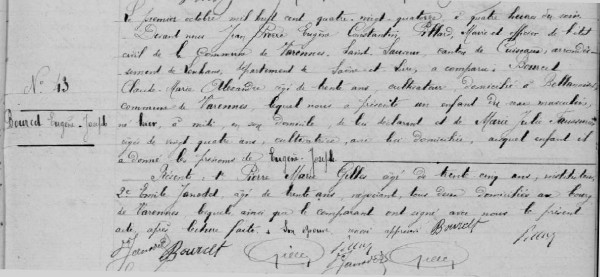 Le premier octobre mil huit cent quatre-vingt-quatorze à quatre heures du soir
Devant nous Jean Pierre Eugène Constantin Maire et officier de l'état
civil de la commune de Varennes-Saint-Sauveur, canton de Cuiseaux, arrondis-
sement de Louhans, département de Saône et Loire, a comparu: Bourcet
Claude-Marie Alexandre âgé de trente ans, cultivateur domicilié à
commune de Varennes, lequel nous a présenté un enfant du sexe masculin,
né hier, à midi, en son domicile de lui déclarant et de Marie Julie
âgée de vingt quatre ans, cultivatrice, avec lui domiciliée, auquel enfant il
a donné les prénoms de Eugène-Joseph
Présents: 1° Pierre Marie âgé de trente cinq ans, instituteur,
2° Emile Janodet âgé de trente ans, négociant, tous deux domiciliés au bourg
de Varennes lesquels ainsi que le comparant ont signé avec nous le présent
acte, après lecture faite. Bourcet
N° 43
Bourcet Eugène-Joseph
Bourcet